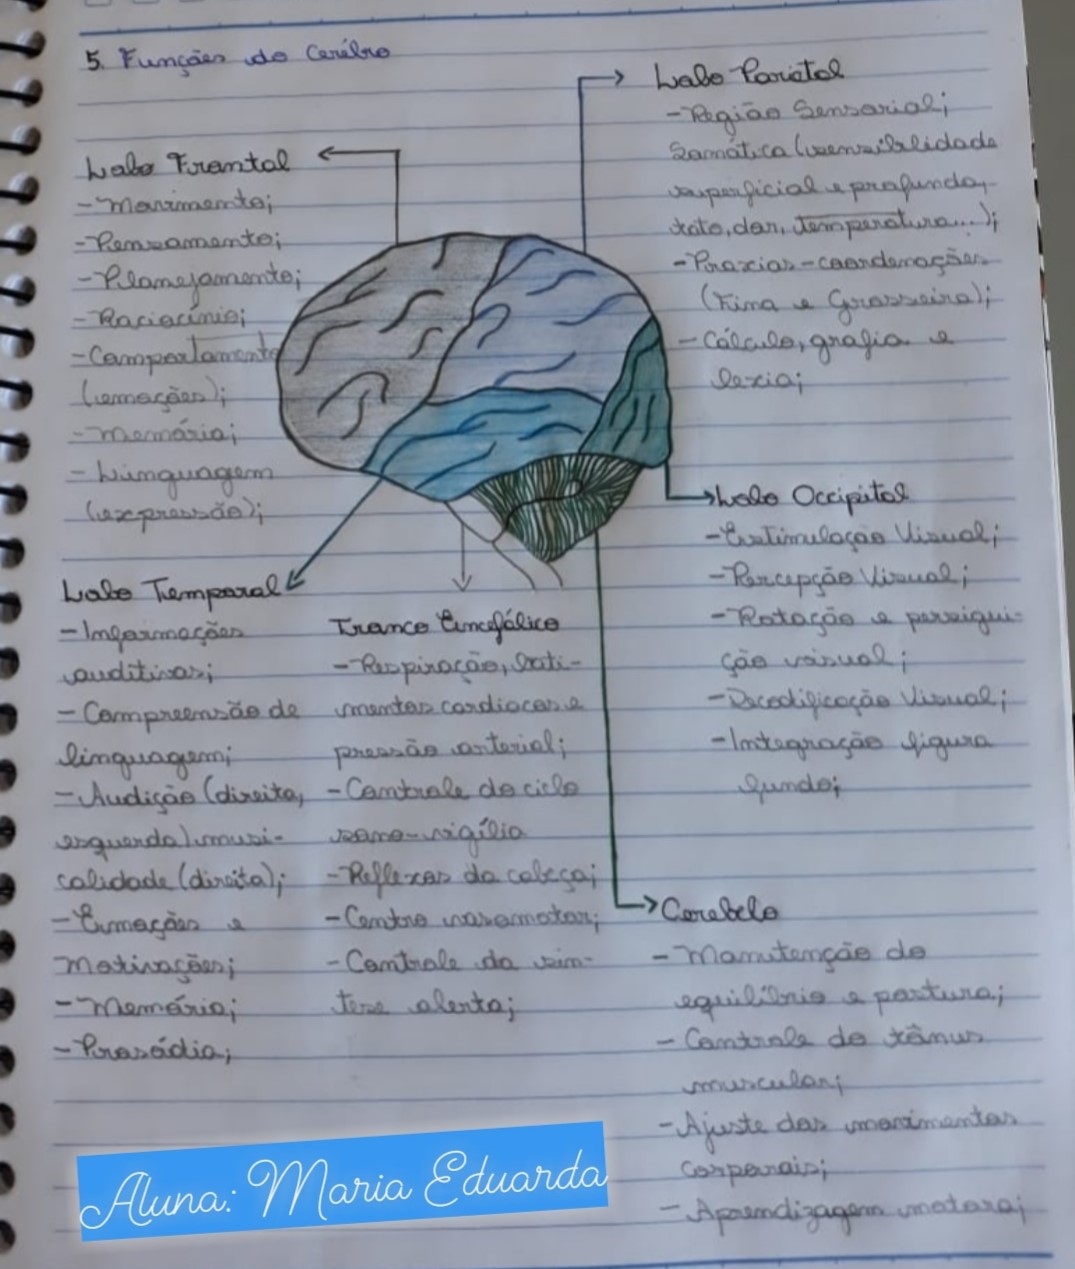 5. Funções do Cerébro
Lobo Frontal
- Movimento;
- Pensamento;
- Planejamento;
- Raciocínio;
- Comportamento
(emoções);
- Memória;
- Linguagem
(expressão);
Lobo Parietal
- Região Sensorial;
Somática (sensibilidade
superficial e profunda,
tato, dor, temperatura...);
- Praxias - coordenações
(Fina e Grosseira);
- Cálculo, grafia e
lexia;
Lobo Occipital
- Estimulação Visual;
- Percepção Visual;
- Rotação e persegui-
ção visual;
- Decodificação Visual;
- Integração figura
fundo;
Lobo Temporal
- Informações
auditivas;
- Compreensão de
linguagem;
- Audição (direita,
esquerda) musi-
calidade (direita);
- Emoções e
Motivações;
- Memória;
- Prosódia;
Tronco Encefálico
- Respiração, bati-
mentos cardíacos e
pressão arterial;
- Controle do ciclo
sono-vigília
- Reflexos da cabeça;
- Centro vasomotor;
- Controle da sin-
tese alerta;
Cerebelo
- Manutenção do
equilíbrio e postura;
- Controle do tônus
muscular;
- Ajuste dos movimentos
corporais;
- Aprendizagem motora;
Aluna: Maria Eduarda